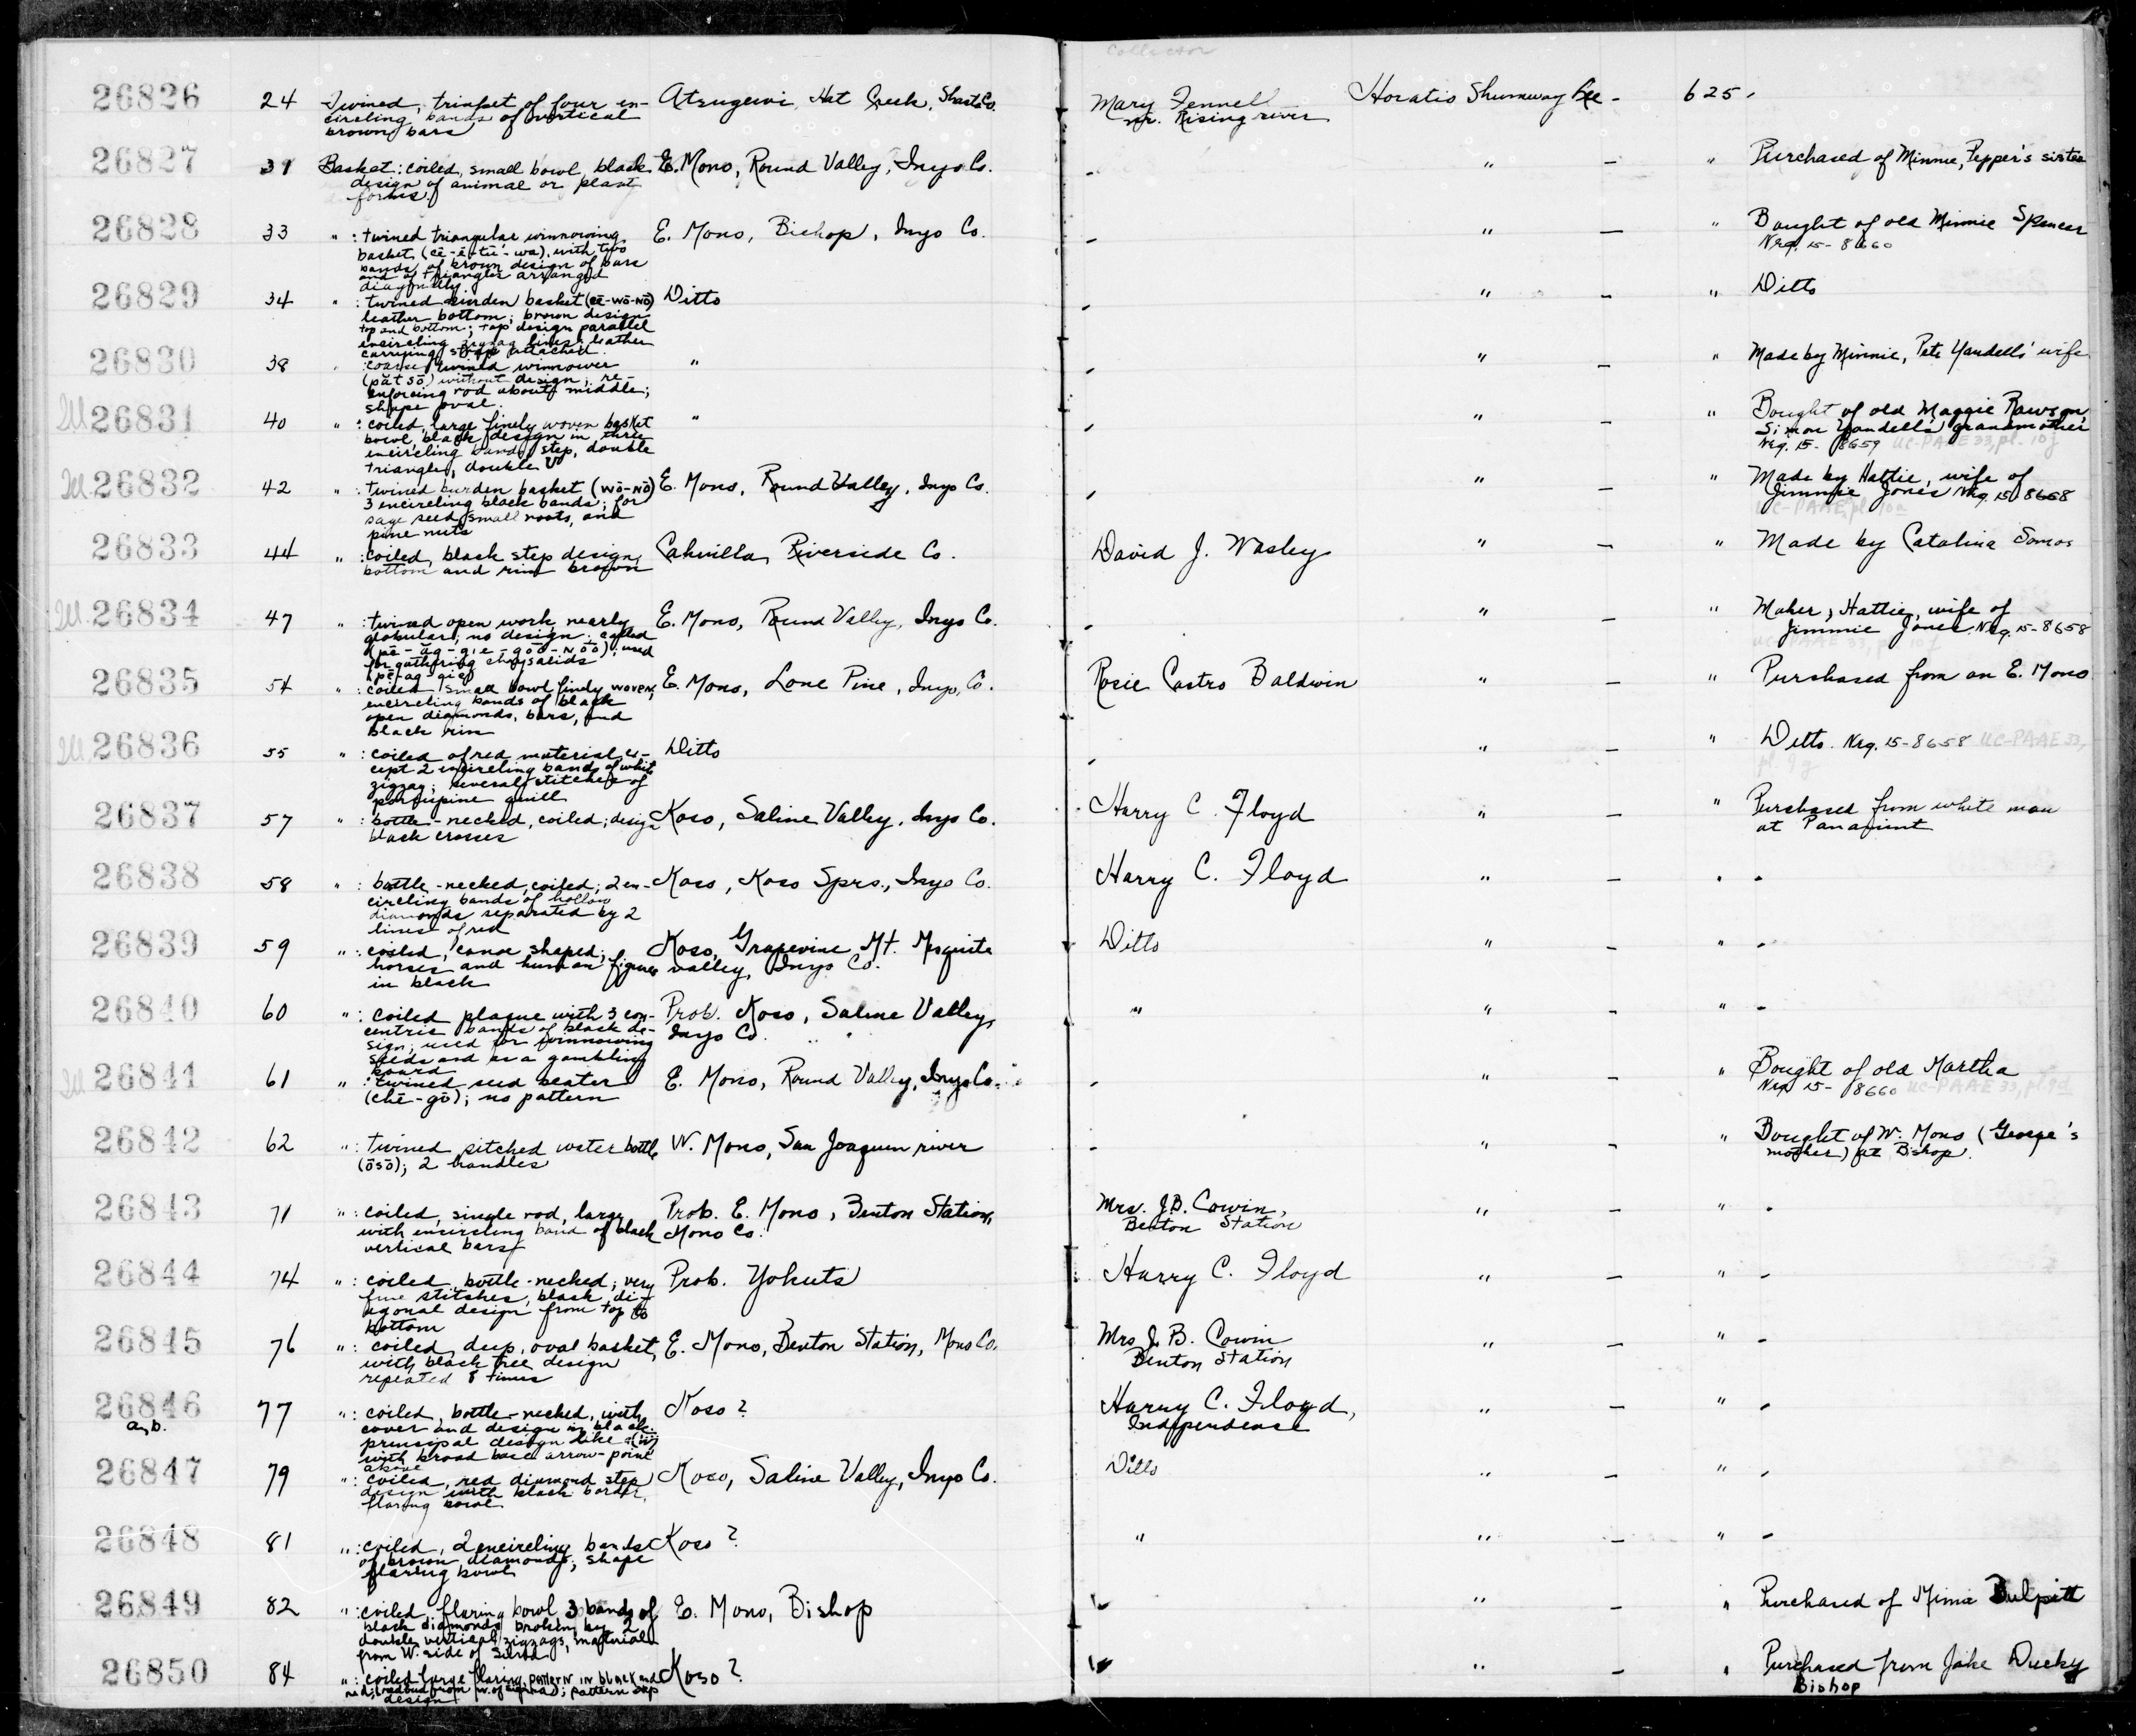 Collector
26826 24 Twined, trinket of four en- Atsugewi, Hat Creek, Shasta Co. Mary Fennell Horatio Shumway Lee - 625.
circling bands of vertical nr. Rising river
brown bars
26827 31 Basket: coiled, small bowl, black E. Mono, Round Valley, Inyo Co. - " - " Purchased of Minnie, Pepper's sister
design of animal or plant
forms
26828 33 " : twined triangular winnowing E. Mono, Bishop, Inyo Co. - " - " Bought of old Minnie Spencer
basket, with two Neg. 15-8660
bands of brown design of bars
and of triangles arranged
diagonally
26829 34 " : twined burden basket (cē-wō-nō) Ditto - " - " Ditto
leather bottom; brown design
top and bottom; top design parallel
encircling zigzag lines; leather
carrying strap attached.
26830 38 coarse twined winnower " - " - " Made by Minnie, Pete Yandell's wife
(pät sō) without design; re-
enforcing rod about middle;
shape oval.
26831 40 " : coiled, large finely woven basket " - " - " Bought of old Maggie Rawson,
bowl, black design in three Simon Yandell's grandmother
encircling bands, step, double Neg. 15-8659 UC-PAAE 33, pl. 10j
triangles, double V
26832 42 " : twined burden basket (wō-nō) E. Mono, Round Valley, Inyo Co. - " - " Made by Hattie, wife of
3 encircling black bands; for Jimmie Jones Neg. 15-8658
sage seed, small roots, and UC-PAAE, pl. 10a
pine nuts
26833 44 " : coiled, black step design, Cahuilla, Riverside Co. David J. Wasley " - " Made by Catalina
bottom and rim brown
26834 47 " : twined open work, nearly E. Mono, Round Valley, Inyo Co. - " - " Maker, Hattie, wife of
globular; no design; called Jimmie Jones. Neg. 15-8658
(pē-äg-gie-gōō-nōō); used
for gathering chrysalids
(pē-äg-gie)
26835 54 " : coiled small bowl finely woven, E. Mono, Lone Pine, Inyo Co. Rosie Castro Baldwin " - " Purchased from an E. Mono
encircling bands of black
open diamonds, bars, and
black rim
26836 55 " : coiled of red material, ex- Ditto - " - " Ditto. Neg. 15-8658 UC-PAAE 33,
cept 2 encircling bands of white pl. 9g
zigzag; several stitches of
porcupine quill
26837 57 " : bottle-necked, coiled; design Koso, Saline Valley, Inyo Co. Harry C. Floyd " - " Purchased from white man
black crosses at Panamint
26838 58 " : bottle-necked, coiled; 2 en- Koso, Koso Sprs., Inyo Co. Harry C. Floyd " - " -
circling bands of hollow
diamonds separated by 2
lines of red
26839 59 " : coiled, canoe shaped; Koso, Grapevine Mt. Mesquite Ditto " - " -
horses and human figures valley, Inyo Co.
in black
26840 60 " : coiled plaque with 3 con- Prob. Koso, Saline Valley, " " - " -
centric bands of black de- Inyo Co.
sign; used for winnowing
seeds and as a gambling
board
26841 61 " : twined seed beater E. Mono, Round Valley, Inyo Co. - " - " Bought of old Martha
(chē-gō); no pattern Neg 15-8660 UC-PAAE 33, pl. 9d
26842 62 " : twined pitched water bottle W. Mono, San Joaquin river - " - " Bought of W. Mono (George's
(ōsō); 2 handles mother) at Bishop.
26843 71 " : coiled, single rod, large, Prob. E. Mono, Benton Station, Mrs. J.B. Cowin, " - " -
with encircling band of black Mono Co. Benton Station
vertical bars
26844 74 " : coiled bottle-necked; very Prob. Yokuts Harry C. Floyd " - " -
fine stitches, black, di-
agonal design from top to
bottom
26845 76 " : coiled, deep, oval basket, E. Mono, Benton Station, Mono Co. Mrs J. B. Cowin " - " -
with black tree design Benton Station
repeated 8 times
26846 77 " : coiled, bottle-necked, with Koso ? Harry C. Floyd, " - " -
a,b. cover and design in black Independence
principal design like
with broad base arrow-point
above
26847 79 " : coiled, red diamond step Koso, Saline Valley, Inyo Co. Ditto " - " -
design with black border,
flaring bowl
26848 81 " : coiled, 2 encircling bands Koso ? " " - " -
of brown diamonds; shape
flaring bowl
26849 82 " : coiled flaring bowl 3 bands of E. Mono, Bishop " - " Purchased of Mima Bulpitt
black diamonds broken by 2
double vertical zigzags, material
from W. side of Sierra
26850 84 " : coiled large flaring, pattern in black and Koso ? " - " Purchased from Jake Ducky
red; redbud from ; pattern step Bishop
design